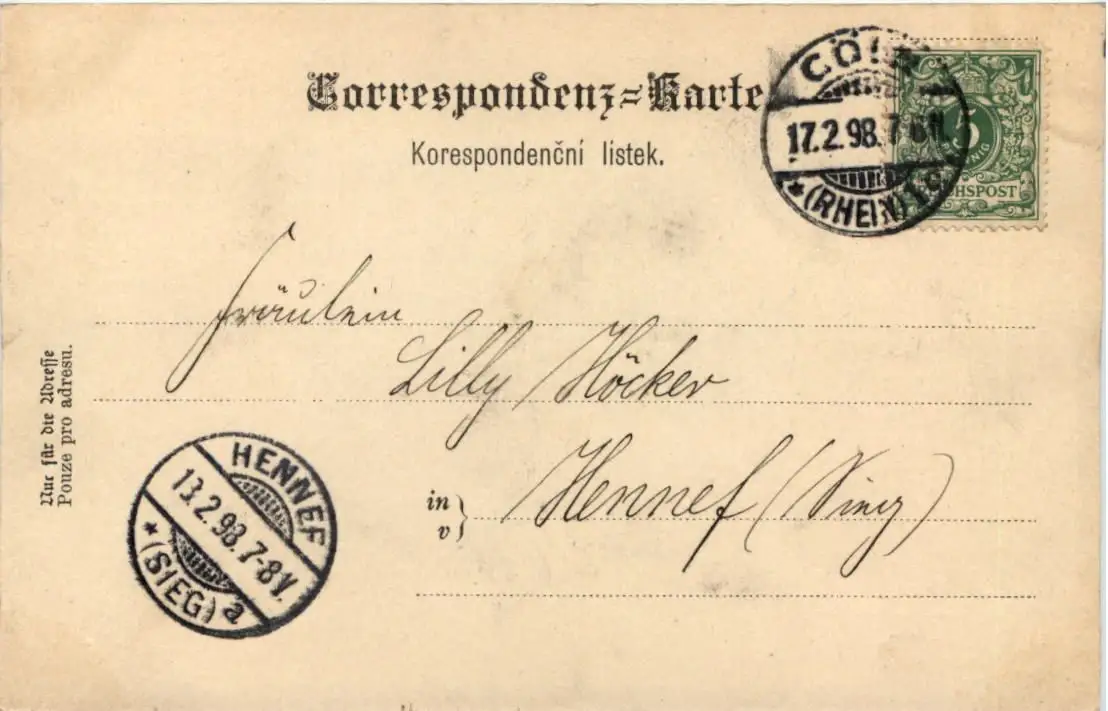 Correspondenz=Karte
Korespondenční lístek.
CÖLN
17.2.98. 7-8 N.
* (RHEIN) 1
5
PFENNIG
REICHSPOST
Nur für die Adresse
Pouze pro adresu.
Fräulein
Lilly Höcker
in
v
Hennef (Sieg)
HENNEF
13.2.98. 7-8V.
* (SIEG) a